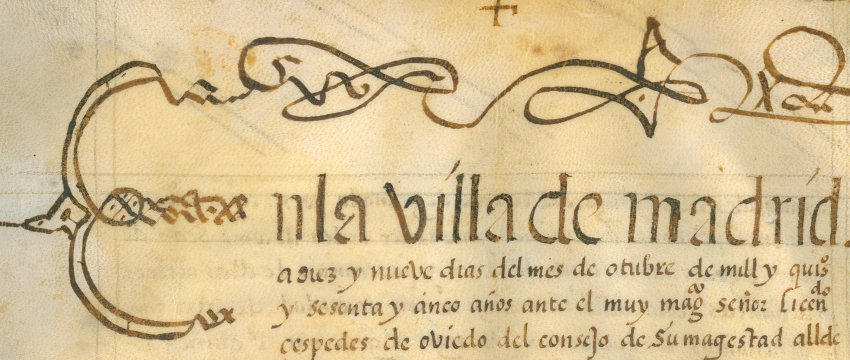 Enla villa de madrid.
a diez y nueve dias del mes de otubre de mill y quis
y sesenta y cinco años ante el muy magco señor licendo
cespedes de oviedo del consejo de Su magestad allde